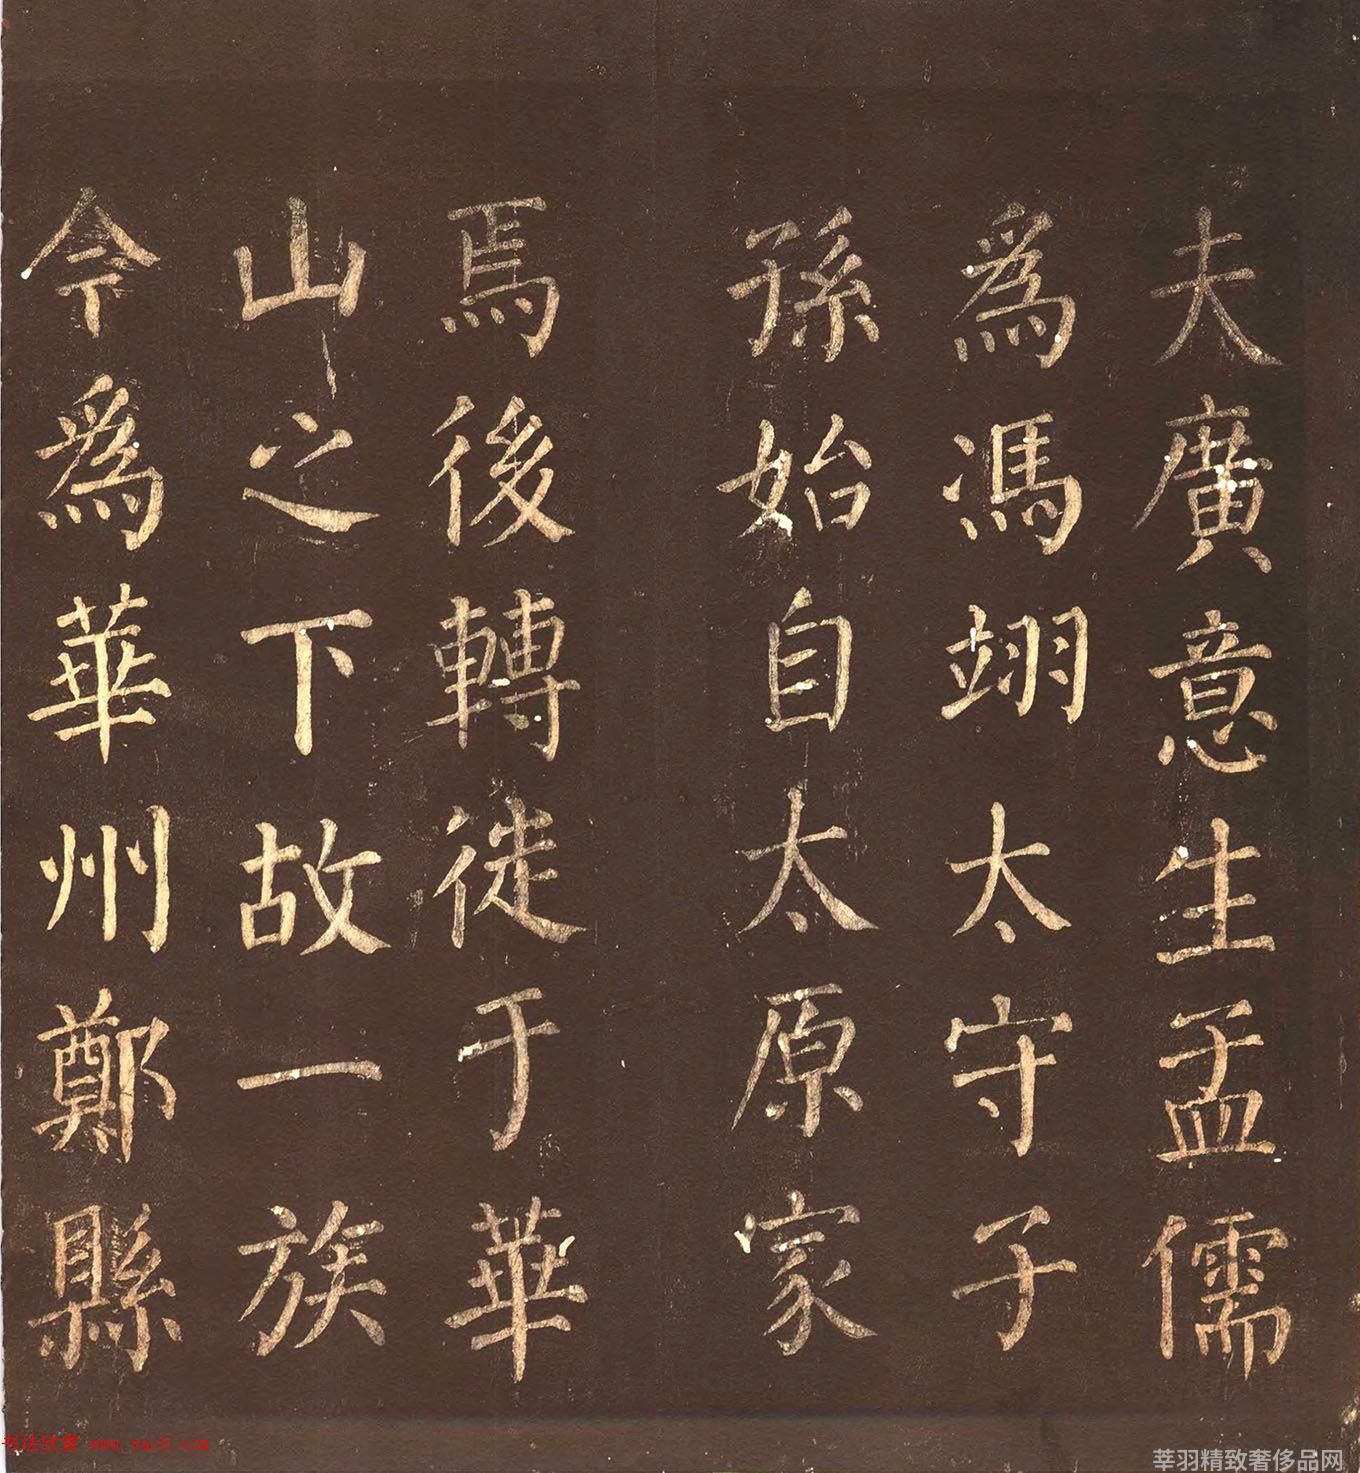 夫廣意生孟儒
為馮翊太守子
孫始自太原家
焉後轉徙于華
山之下故一族
今為華州鄭縣
书法欣赏 www.yac8.com
莘羽精致奢侈品网